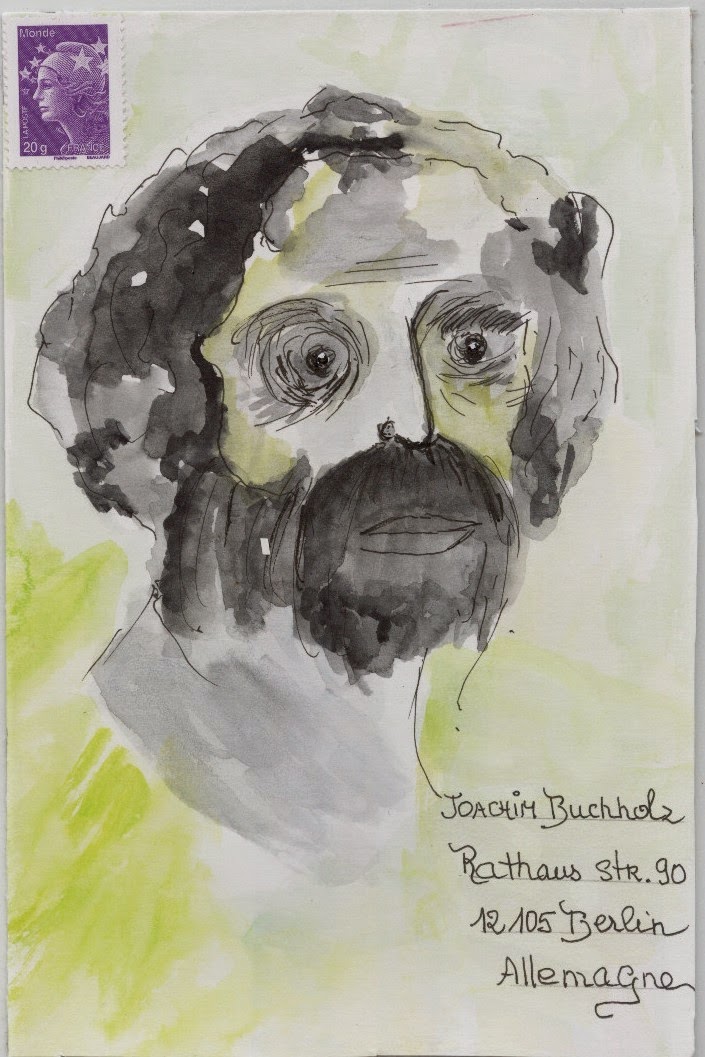 Monde
LA POSTE
20g
FRANCE
Phil@poste
BEAUJARD
JOACHIM Buchholz
Rathaus Str. 90
12105 Berlin
Allemagne